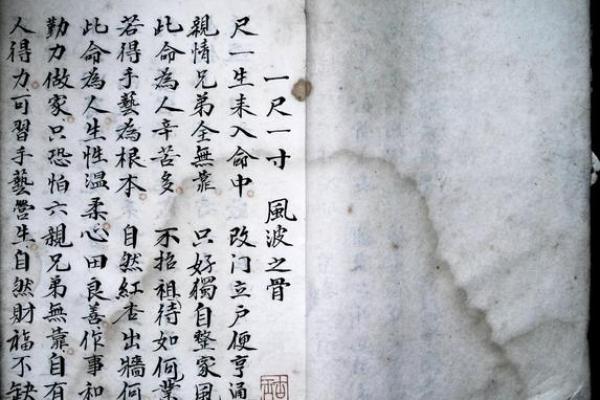 一尺一寸 風波之骨
尺一生来入命中 改门立戶便亨通
親情兄弟全無靠 只好獨自整家風
此命為人辛苦多 不招祖待如何業
若得手藝為根本 自然紅杏出牆何
此命為人生性温柔心田良善作事和
勤力做家只恐怕六親兄弟無靠自有
人得力可習手藝營生自然財福不缺